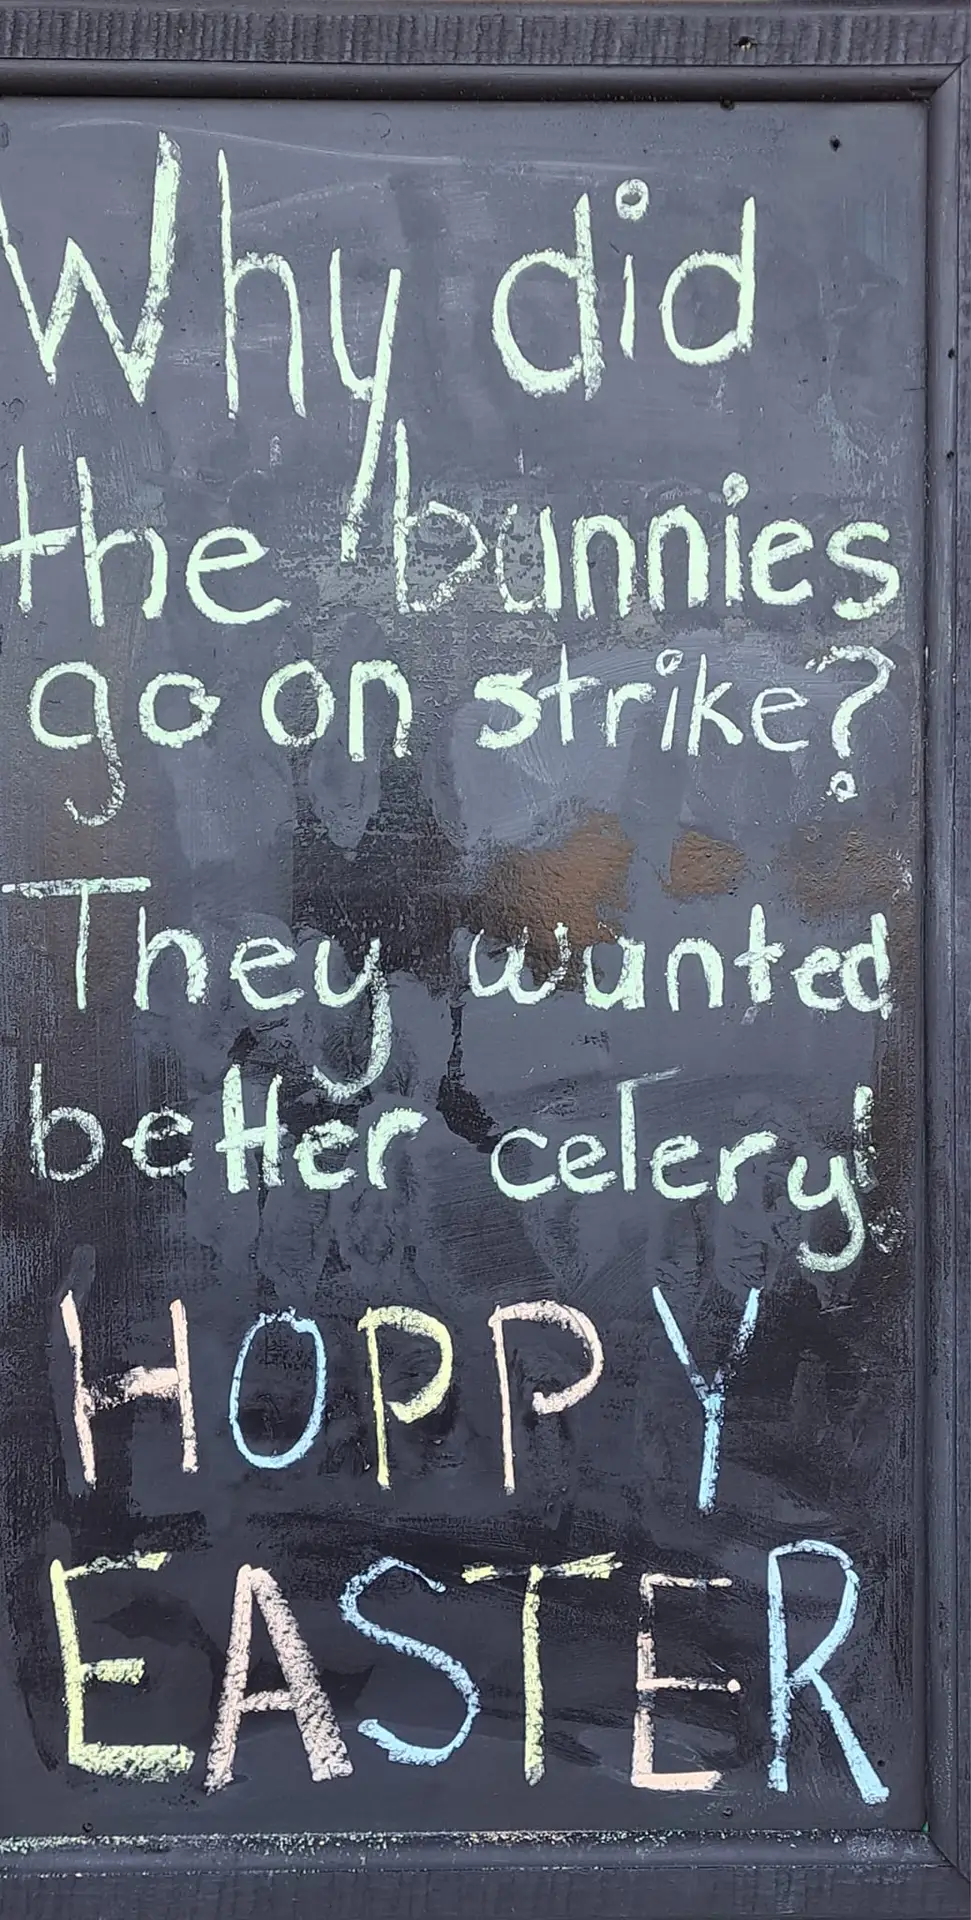 Why did
the bunnies
go on strike?
They wanted
better celery!
HOPPY
EASTER